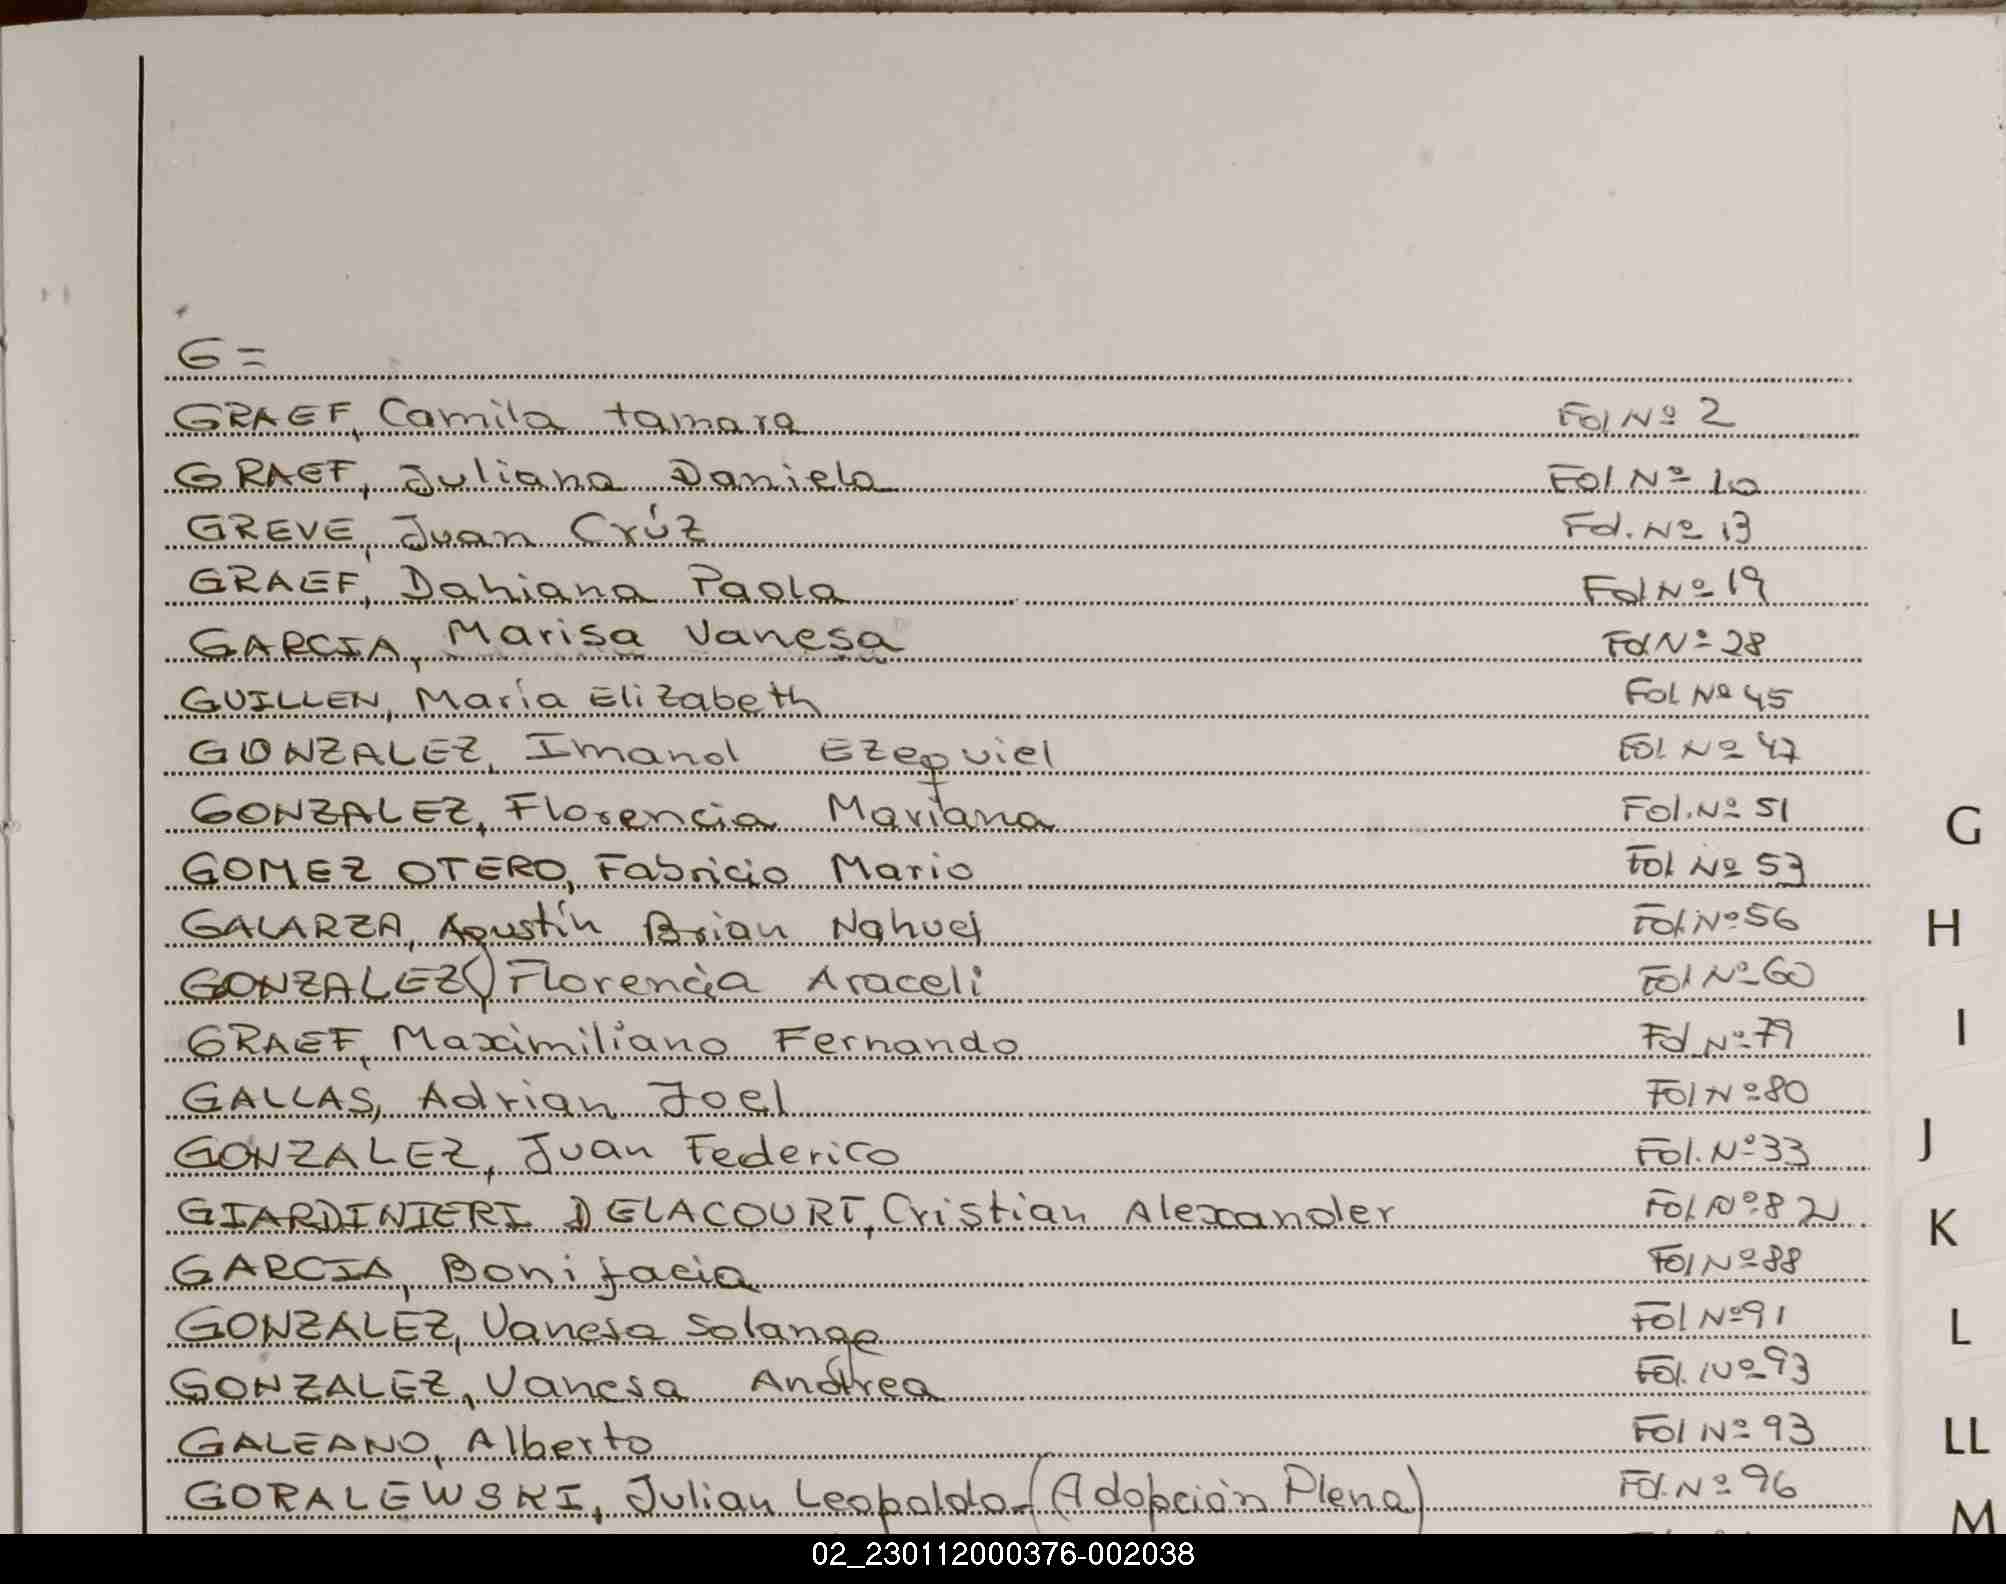 G=
GRAEF, Camila tamara Fol Nº 2
GRAEF, Juliana Daniela Fol Nº 10
GREVE, Juan Crúz Fol. Nº 13
GRAEF, Dahiana Paola Fol Nº 19
GARCIA, Marisa Vanesa Fol Nº 28
GUILLEN, María Elizabeth Fol Nº 45
GONZALEZ, Imanol Ezequiel Fol Nº 47
GONZALEZ, Florencia Mariana Fol. Nº 51
GOMEZ OTERO, Fabricio Mario Fol Nº 53
GALARZA, Agustín Brian Nahuel Fol. Nº 56
GONZALEZ, Florencia Araceli Fol Nº 60
GRAEF, Maximiliano Fernando Fol Nº 79
GALLAS, Adrian Joel Fol Nº 80
GONZALEZ, Juan Federico Fol. Nº 33
GIARDINIERI DELACOURT, Cristian Alexander Fol. Nº 82
GARCIA, Bonifacia Fol Nº 88
GONZALEZ, Vanesa Solange Fol Nº 91
GONZALEZ, Vanesa Andrea Fol. Nº 93
GALEANO, Alberto Fol Nº 93
GORALEWSKI, Julian Leopoldo - (Adopción Plena) Fol. Nº 96
G
H
I
J
K
L
LL
M
02_230112000376-002038